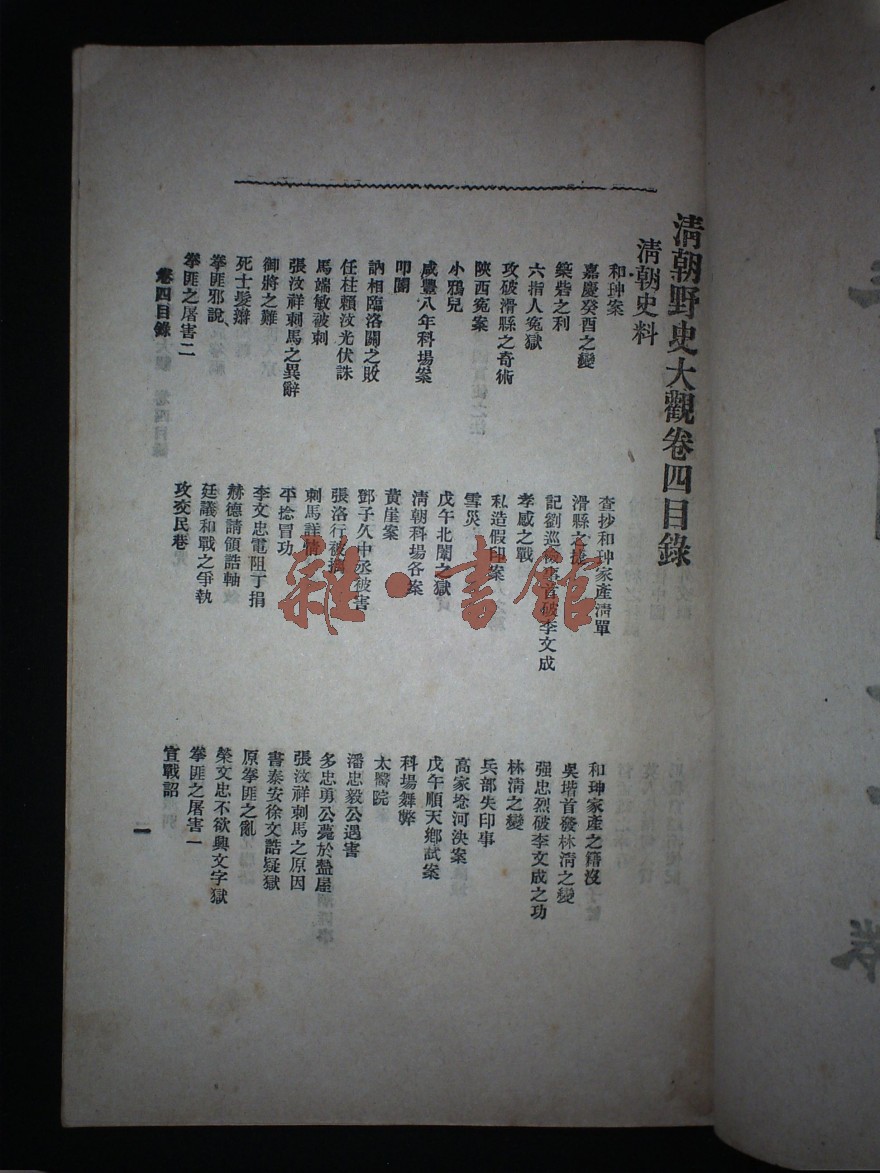 清朝野史大觀卷四目錄
清朝史料
和珅案 查抄和珅家產清單 和珅家產之籍沒
嘉慶癸酉之變 滑縣之捷 吳堦首發林清之變
築砦之利 記劉巡檢 破李文成 強忠烈破李文成之功
六指人冤獄 孝感之戰 林清之變
攻破滑縣之奇術 私造假印案 兵部失印事
陝西冤案 雪災 高家埝河決案
小鴉兒 戊午北闈之獄 戊午順天鄉試案
咸豐八年科場案 清朝科場各案 科場舞弊
叩閽 黃崖案 太醫院
訥相臨洛關之敗 鄧子久中丞被害 潘忠毅公遇害
任柱賴汶光伏誅 張洛行被擒 多忠勇公薨於盩厔
馬端敏被刺 刺馬詳情 張汶祥刺馬之原因
張汶祥刺馬之異辭 平捻冒功 書泰安徐文誥疑獄
御將之難 李文忠電阻丁捐 原拳匪之亂
死士髮辮 赫德請領誥軸 榮文忠不欲興文字獄
拳匪邪說 廷議和戰之爭執 拳匪之屠害一
拳匪之屠害二 攻交民巷 宣戰詔
卷四目錄
一
雜·書館